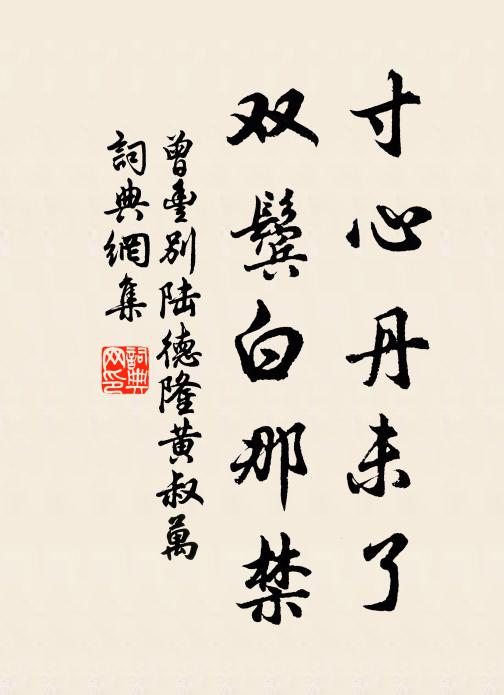 寸心丹未了
双鬓白那禁
曾豊别陆德隆黄叔萬
詞典網集
詞典网印